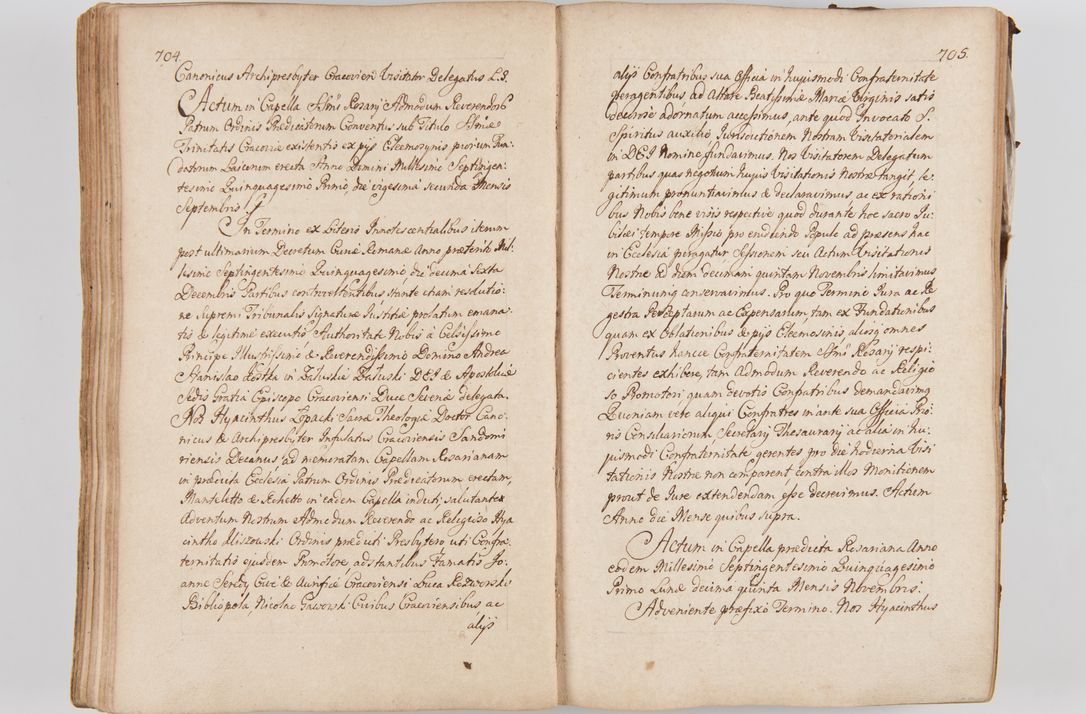 704.
Canonicus Archipresbyter Cracovien: Visitator Delegatus L.S.
Actum in Capella SSmi Rosarij Admodum Reverendorũ
Patrum Ordinis Prædicatorum Conventus sub Titulo SSmæ
Trinitatis Cracoviæ existentis ex pijs Eleemosynis piorum
datorum erecta Anno Domini Millesimo Septingen-
tesimo Quinquagesimo Primo, die vigesima secunda Mensis
Septembris
In Termino ex Literis Innotescentialibus iterum
post ultimarium Decretum Curiæ Romanæ Anno præterito Mil-
lesimo Septingentesimo Quinquagesimo die decima Sexta
Decembris Partibus controvertentibus stante etiam resolutio-
ne Supremi Tribunalis Signaturæ Justitiæ prolatum emana-
tis & legitime executis Authoritate Nobis à Celsissimo
Principe Illustrissimo & Reverendissimo Domino Andrea
Stanislao Kostka in Załuskie Załuski DEI & Apostolicæ
Sedis Gratia Episcopo Cracoviensi Duce Severiæ delegata.
Nos Hyacinthus Łopacki Sacræ Theologiæ Doctor Cano-
nicus & Archipresbyter Infulatus Cracoviensis Sandomi
riensis Decanus ad memoratam Capellam Rosarianam
in prædicta Ecclesia Patrum Ordinis Prædicatorum erectam,
Manteletto & Rochetto in eadem Capella induti, salutantes
Adventum Nostrum Admodum Reverendo ac Religioso Hya
cintho Liszowski Ordinis prædicti Presbytero uti Confra-
ternitatis ejusdem Promotore adstantibus Famatis Jo-
anne Cive & Aurifice Cracoviensi Luca
Bibliopola, Nicolao Gaworski Civibus Cracoviensibus ac
alijs
705.
alijs Confratribus sua Officia in hujusmodi Confraternitate
peragentibus ad Altare Beatissimæ Mariæ Virginis satis
decorose adornatum accessimus, ante quod Invocato S.
Spiritus auxilio Jurisdictionem Nostram Visitatorialem
in DEI Nomine fundavimus. Nos Visitatorem Delegatum
partibus quas negotium hujus Visitationis Nostræ tangit le-
gitimum pronuntiavimus & declaravimus ac ex rationi
bus Nobis bene visis respective quod durante hoc sacro Ju-
bilæi tempore Missio pro erudiendo Populo ad præsens hac
in Ecclesia peragatur Sessionem seu Actum Visitationis
Nostræ ad diem decimam quintam Novembris limitavimus
Terminumq conservavimus. Pro quo Termino Jura ac Re
gestra Perceptarum ac Expensarum, tam ex Fundationibus
quam ex Oblationibus & pijs Eleemosinis, aliosq omnes
Proventus hancce Confraternitatem SSmi Rosarij respi-
cientes exhibere, tam Admodum Reverendo ac Religio
so Promotori quam devotis Confratribus demandavimus
Quoniam vero aliqui Confratres in ante sua Officia Prio-
ris Consiliariorum Secretarij Thesaurarij ac alia in hu-
jusmodi Confraternitate gerentes pro die hodierna Visi
tationis Nostræ non comparent contra illos Monitionem
prout de Jure extendendam esse decrevimus. Actum
Anno die Mense quibus supra.
Actum in Capella prædicta Rosariana Anno
eodem Millesimo Septingentesimo Quinquagesimo
Primo Lunæ decima quinta Mensis Novembris.
Adveniente præfixo Termino. Nos Hyacinthus